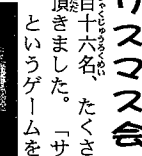 リスマス会
百十六名、たくさ
頂きました。「サ
というゲームを